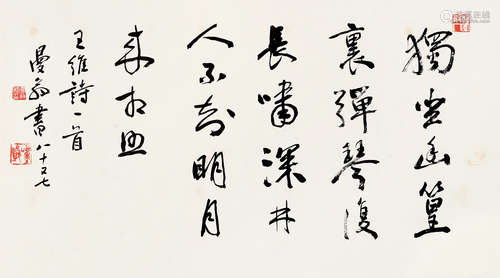 獨坐幽篁
裏彈琴復
長嘯深林
人不知明月
来相照
王維詩一首
曼翁書八十又七